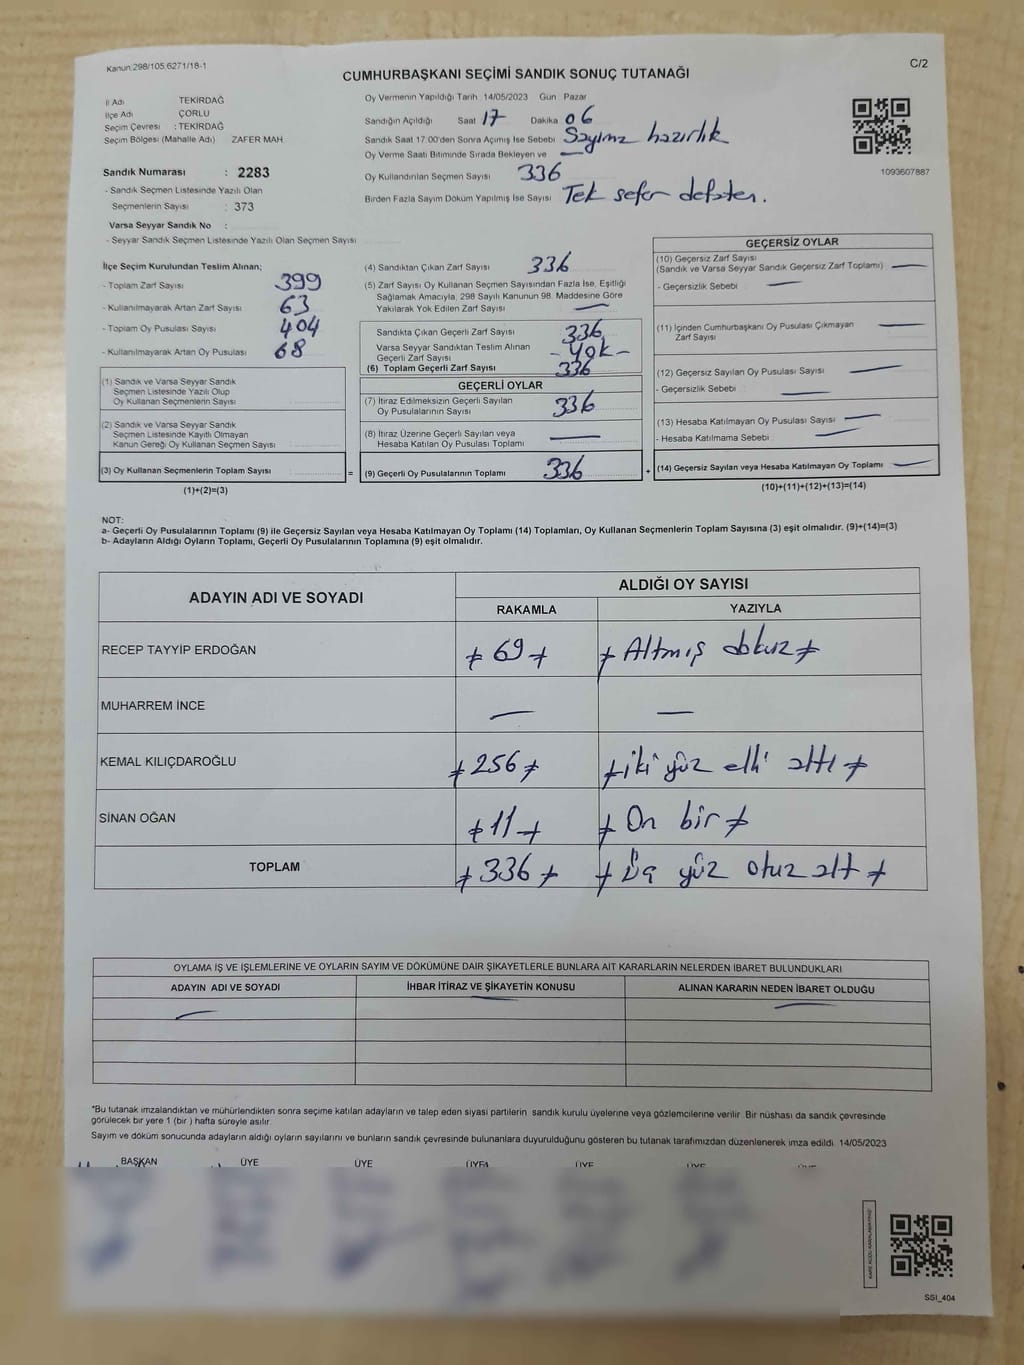 Kanun:298/105:6271/18-1
C/2
CUMHURBAŞKANI SEÇİMİ SANDIK SONUÇ TUTANAĞI
İl Adı TEKİRDAĞ
İlçe Adı ÇORLU
Seçim Çevresi : TEKİRDAĞ
Seçim Bölgesi (Mahalle Adı) ZAFER MAH.
Sandık Numarası : 2283
- Sandık Seçmen Listesinde Yazılı Olan
Seçmenlerin Sayısı : 373
Varsa Seyyar Sandık No :
- Seyyar Sandık Seçmen Listesinde Yazılı Olan Seçmen Sayısı
Oy Vermenin Yapıldığı Tarih 14/05/2023 Gün Pazar
Sandığın Açıldığı Saat 17 Dakika 06
Sandık Saat 17:00'den Sonra Açımış İse Sebebi Sayıma hazırlık
Oy Verme Saati Bitiminde Sırada Bekleyen ve —
Oy Kullandırılan Seçmen Sayısı 336
Birden Fazla Sayım Döküm Yapılmış İse Sayısı Tek sefer defaten.
1093607887
İlçe Seçim Kurulundan Teslim Alınan;
- Toplam Zarf Sayısı 399
- Kullanılmayarak Artan Zarf Sayısı 63
- Toplam Oy Pusulası Sayısı 404
- Kullanılmayarak Artan Oy Pusulası 68
(1) Sandık ve Varsa Seyyar Sandık
Seçmen Listesinde Yazılı Olup
Oy Kullanan Seçmenlerin Sayısı
(2) Sandık ve Varsa Seyyar Sandık
Seçmen Listesinde Kayıtlı Olmayan
Kanun Gereği Oy Kullanan Seçmen Sayısı
(3) Oy Kullanan Seçmenlerin Toplam Sayısı =
(1)+(2)=(3)
(4) Sandıktan Çıkan Zarf Sayısı 336
(5) Zarf Sayısı Oy Kullanan Seçmen Sayısından Fazla İse, Eşitliği
Sağlamak Amacıyla, 298 Sayılı Kanunun 98. Maddesine Göre
Yakılarak Yok Edilen Zarf Sayısı —
Sandıkta Çıkan Geçerli Zarf Sayısı 336
Varsa Seyyar Sandıktan Teslim Alınan
Geçerli Zarf Sayısı - Yok -
(6) Toplam Geçerli Zarf Sayısı 336
GEÇERLİ OYLAR
(7) İtiraz Edilmeksizin Geçerli Sayılan
Oy Pusulalarının Sayısı 336
(8) İtiraz Üzerine Geçerli Sayılan veya
Hesaba Katılan Oy Pusulası Toplamı —
(9) Geçerli Oy Pusulalarının Toplamı 336 +
GEÇERSİZ OYLAR
(10) Geçersiz Zarf Sayısı
(Sandık ve Varsa Seyyar Sandık Geçersiz Zarf Toplamı) —
- Geçersizlik Sebebi —
(11) İçinden Cumhurbaşkanı Oy Pusulası Çıkmayan —
Zarf Sayısı
(12) Geçersiz Sayılan Oy Pusulası Sayısı —
- Geçersizlik Sebebi —
(13) Hesaba Katılmayan Oy Pusulası Sayısı —
- Hesaba Katılmama Sebebi —
(14) Geçersiz Sayılan veya Hesaba Katılmayan Oy Toplamı —
(10)+(11)+(12)+(13)=(14)
NOT:
a- Geçerli Oy Pusulalarının Toplamı (9) ile Geçersiz Sayılan veya Hesaba Katılmayan Oy Toplamı (14) Toplamları, Oy Kullanan Seçmenlerin Toplam Sayısına (3) eşit olmalıdır. (9)+(14)=(3)
b- Adayların Aldığı Oyların Toplamı, Geçerli Oy Pusulalarının Toplamına (9) eşit olmalıdır.
ADAYIN ADI VE SOYADI
ALDIĞI OY SAYISI
RAKAMLA YAZIYLA
RECEP TAYYİP ERDOĞAN 69 Altmış dokuz
MUHARREM İNCE — —
KEMAL KILIÇDAROĞLU 256 iki yüz elli altı
SİNAN OĞAN 11 On bir
TOPLAM 336 Üç yüz otuz altı
OYLAMA İŞ VE İŞLEMLERİNE VE OYLARIN SAYIM VE DÖKÜMÜNE DAİR ŞİKAYETLERLE BUNLARA AİT KARARLARIN NELERDEN İBARET BULUNDUKLARI
ADAYIN ADI VE SOYADI İHBAR İTİRAZ VE ŞİKAYETİN KONUSU ALINAN KARARIN NEDEN İBARET OLDUĞU
— — —
*Bu tutanak imzalandıktan ve mühürlendikten sonra seçime katılan adayların ve talep eden siyasi partilerin sandık kurulu üyelerine veya gözlemcilerine verilir. Bir nüshası da sandık çevresinde
görülecek bir yere 1 (bir ) hafta süreyle asılır.
Sayım ve döküm sonucunda adayların aldığı oyların sayılarını ve bunların sandık çevresinde bulunanlara duyurulduğunu gösteren bu tutanak tarafımızdan düzenlenerek imza edildi. 14/05/2023
BAŞKAN ÜYE ÜYE ÜYE ÜYE ÜYE
SSI_404